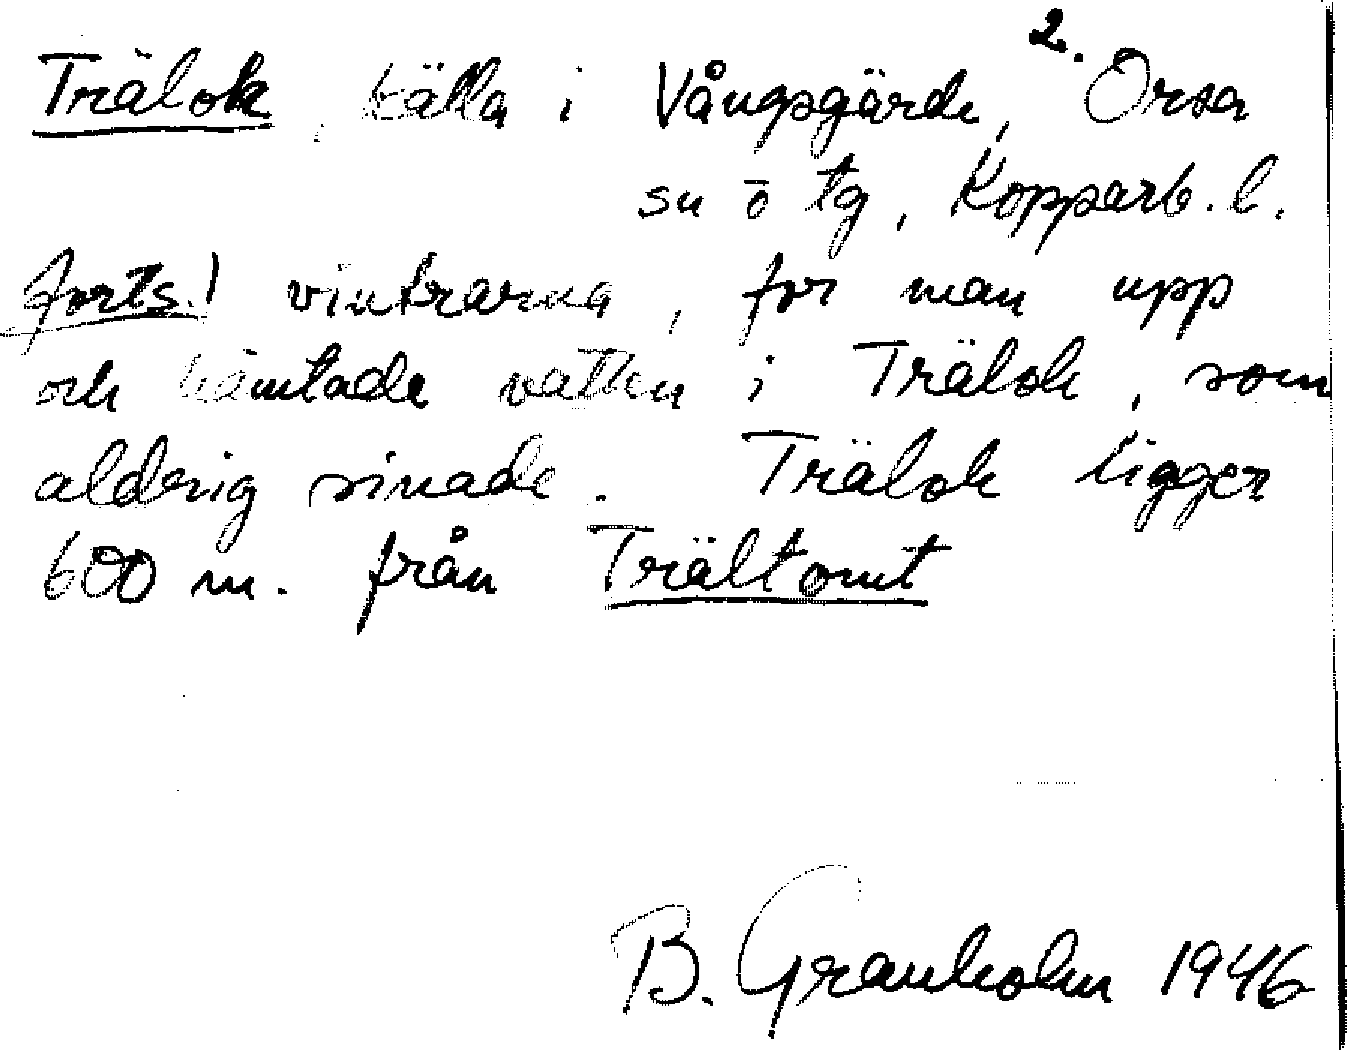 2.
Trälok, källa i Vångsgärde, Orsa
sn o tg, Kopparb. l.
forts.) vintrarna, for man upp
och hämtade vatten i Trälok, som
aldrig sinade. Trälok ligger
600 m. från Trältomt
B. Granholm 1946